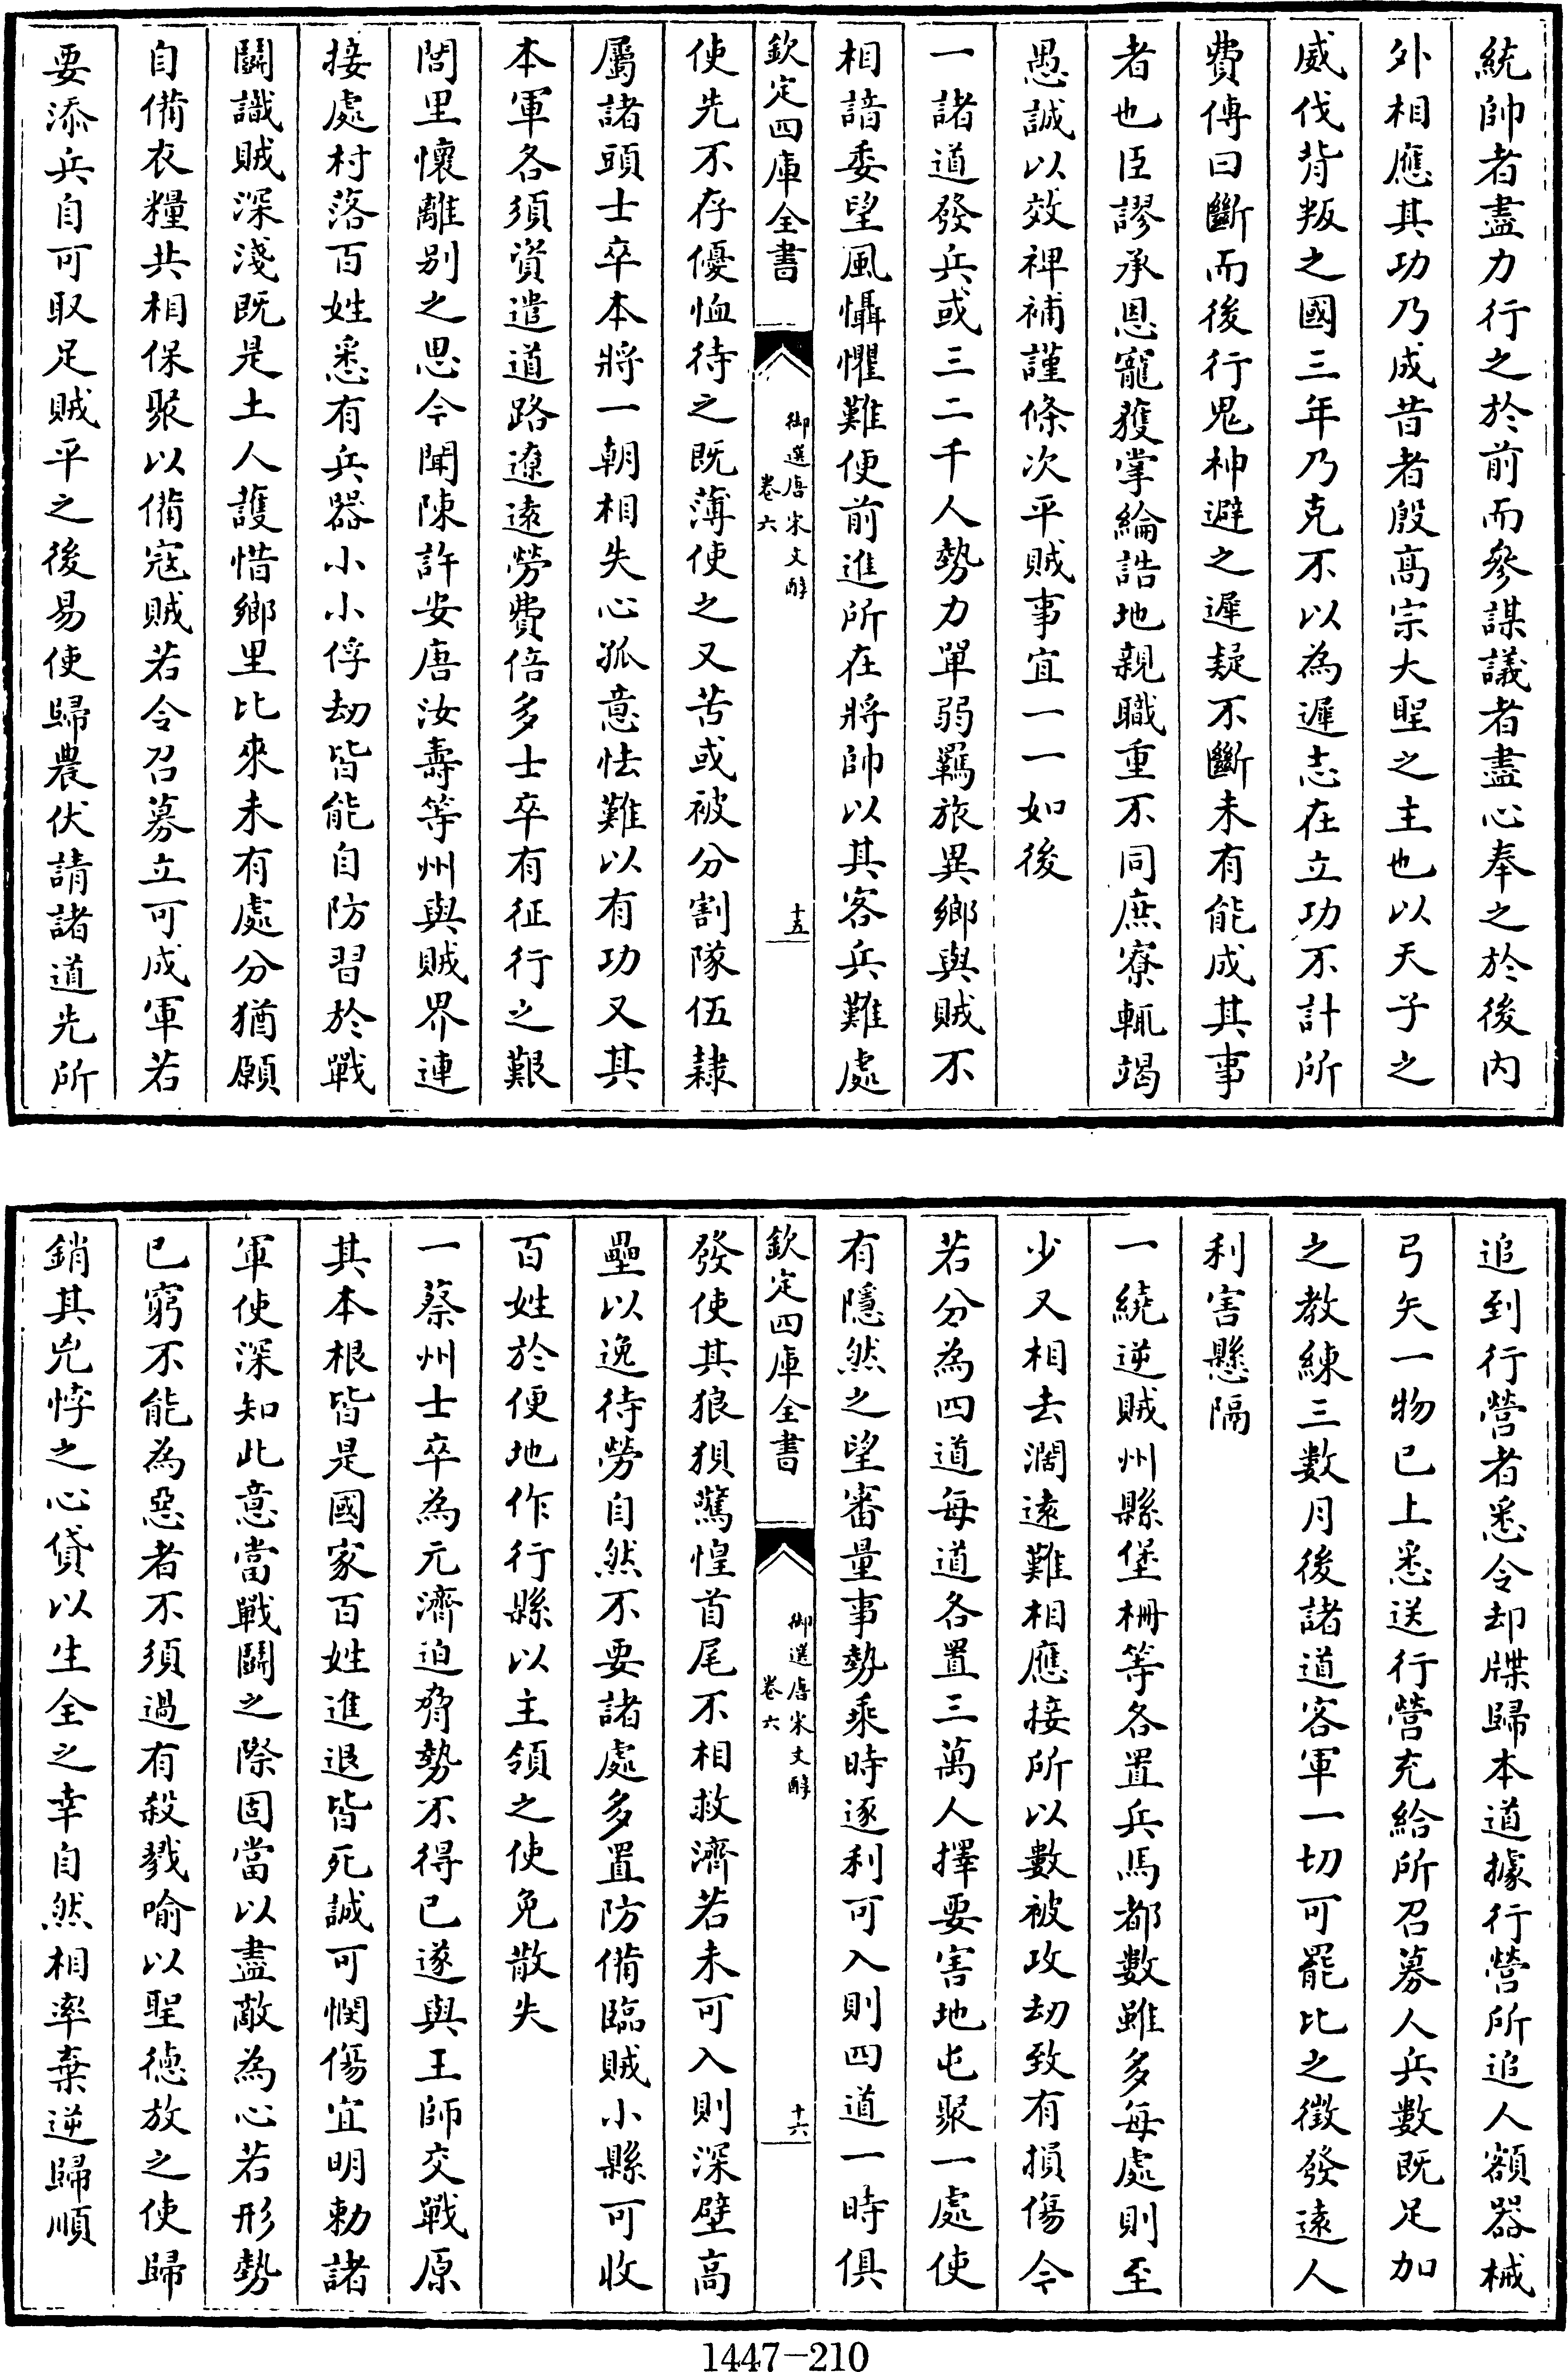 統帥者盡力行之於前而參謀議者盡心奉之於後内
外相應其功乃成昔者殷髙宗大聖之主也以天子之
威伐背叛之國三年乃克不以為遲志在立功不計所
費傳曰斷而後行鬼神避之遲疑不斷未有能成其事
者也臣謬承恩寵獲掌綸誥地親職重不同庶寮輒竭
愚誠以效裨補謹條次平賊事宜一一如後
一諸道發兵或三二千人勢力單弱羈旅異鄉與賊不
相諳委望風懾懼難便前進所在將帥以其客兵難處
欽定四庫全書
御選唐宋文醇
卷六
十五
使先不存優恤待之既薄使之又苦或被分割隊伍隸
屬諸頭士卒本將一朝相失心孤意怯難以有功又其
本軍各須資遣道路遼遠勞費倍多士卒有征行之艱
閭里懷離别之思今聞陳許安唐汝壽等州與賊界連
接處村落百姓悉有兵器小小俘劫皆能自防習於戰
鬭識賊深淺既是土人護惜鄉里比來未有處分猶願
自備衣糧共相保聚以備寇賊若令召募立可成軍若
要添兵自可取足賊平之後易使歸農伏請諸道先所
追到行營者悉令却牒歸本道據行營所追人額器械
弓矢一物已上悉送行營充給所召募人兵數既足加
之教練三數月後諸道客軍一切可罷比之徵發遠人
利害懸隔
一繞逆賊州縣堡柵等各置兵馬都數雖多每處則至
少又相去濶遠難相應接所以數被攻劫致有損傷今
若分為四道每道各置三萬人擇要害地屯聚一處使
有隱然之望審量事勢乘時逐利可入則四道一時俱
欽定四庫全書
御選唐宋文醇
卷六
十六
發使其狼狽驚惶首尾不相救濟若未可入則深壁高
壘以逸待勞自然不要諸處多置防備臨賊小縣可收
百姓於便地作行縣以主領之使免散失
一蔡州士卒為元濟迫脅勢不得已遂與王師交戰原
其本根皆是國家百姓進退皆死誠可憫傷宜明勅諸
軍使深知此意當戰鬭之際固當以盡敵為心若形勢
已窮不能為惡者不須過有殺戮喻以聖德放之使歸
銷其兇悖之心貸以生全之幸自然相率棄逆歸順
1447-210